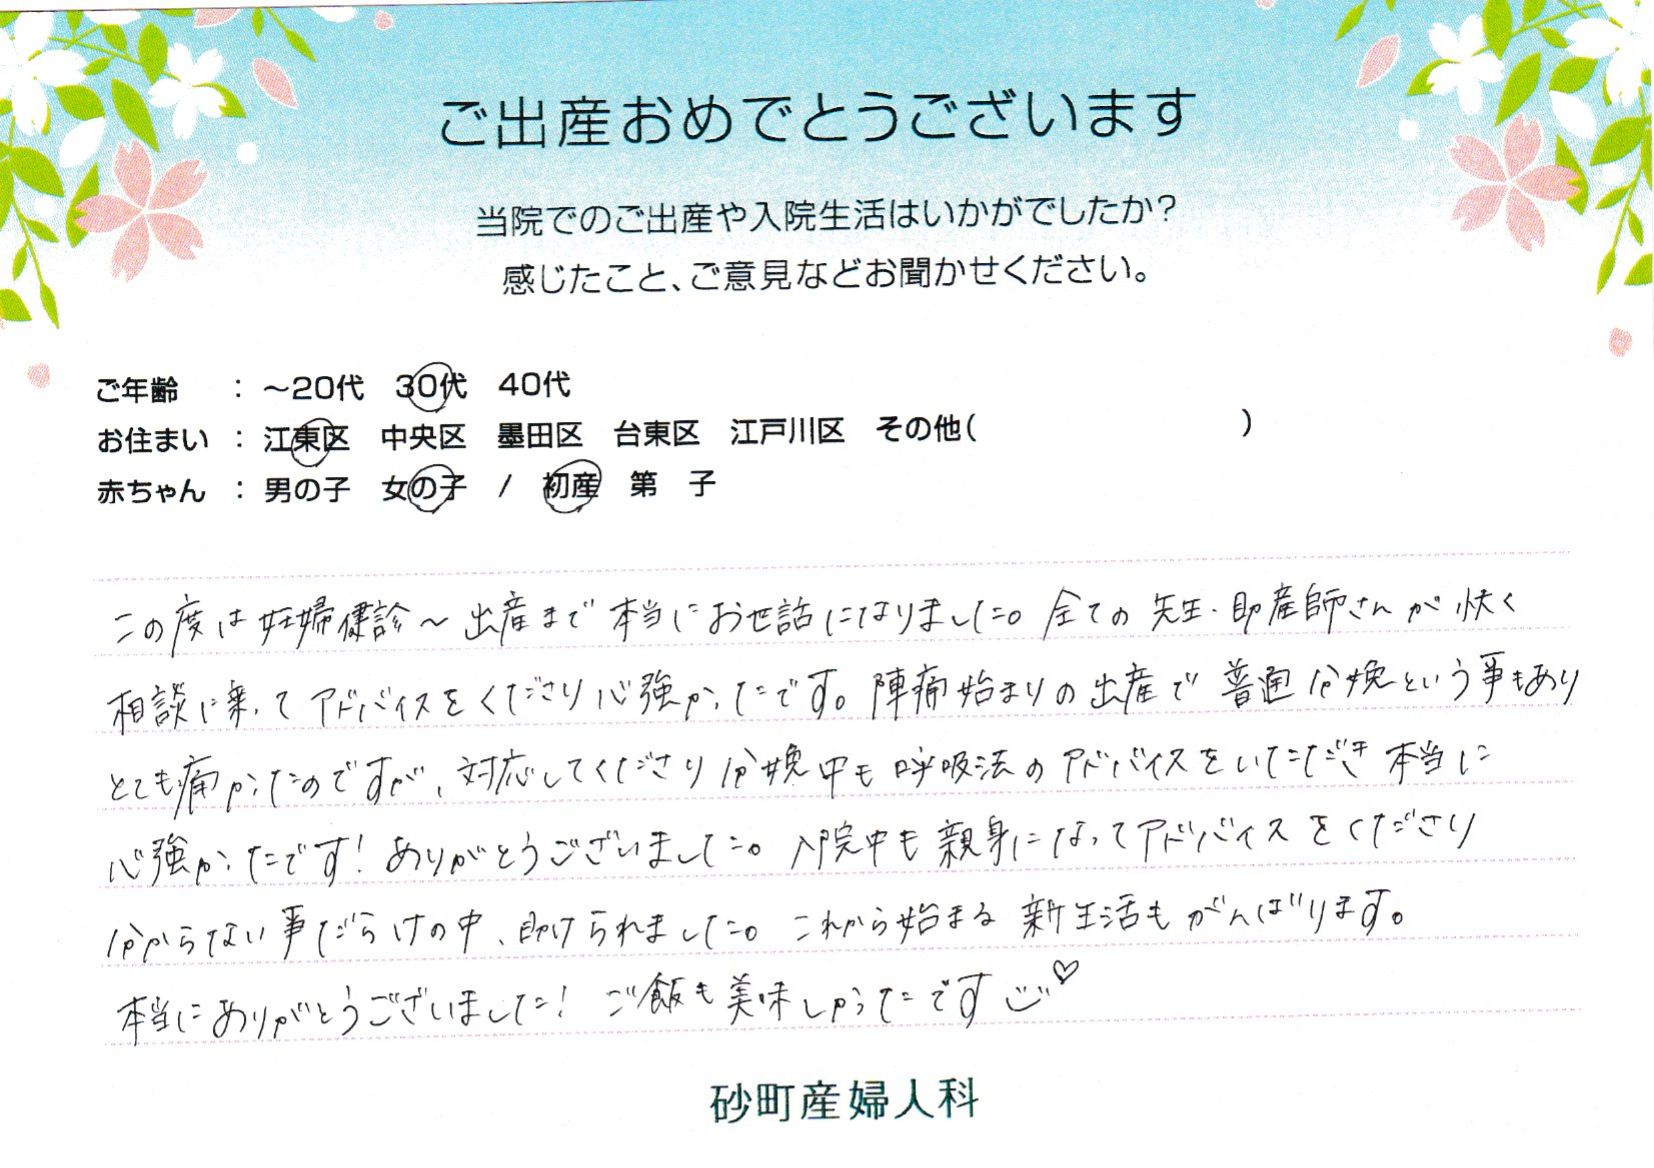 ご出産おめでとうございます
当院でのご出産や入院生活はいかがでしたか?
感じたこと、ご意見などお聞かせください。
ご年齢 : ～20代 30代 40代
お住まい : 江東区 中央区 墨田区 台東区 江戸川区 その他( )
赤ちゃん : 男の子 女の子 / 初産 第 子
この度は妊婦健診～出産まで本当にお世話になりました。全ての先生・助産師さんが快く
相談に乗ってアドバイスをくださり心強かったです。陣痛始まりの出産で普通分娩という事もあり
とても痛かったのですが、対応してくださり分娩中も呼吸法のアドバイスをいただき本当に
心強かったです!ありがとうございました。入院中も親身になってアドバイスをくださり
分からない事だらけの中、助けられました。これから始まる新生活もがんばります。
本当にありがとうございました!ご飯も美味しかったです♡
砂町産婦人科